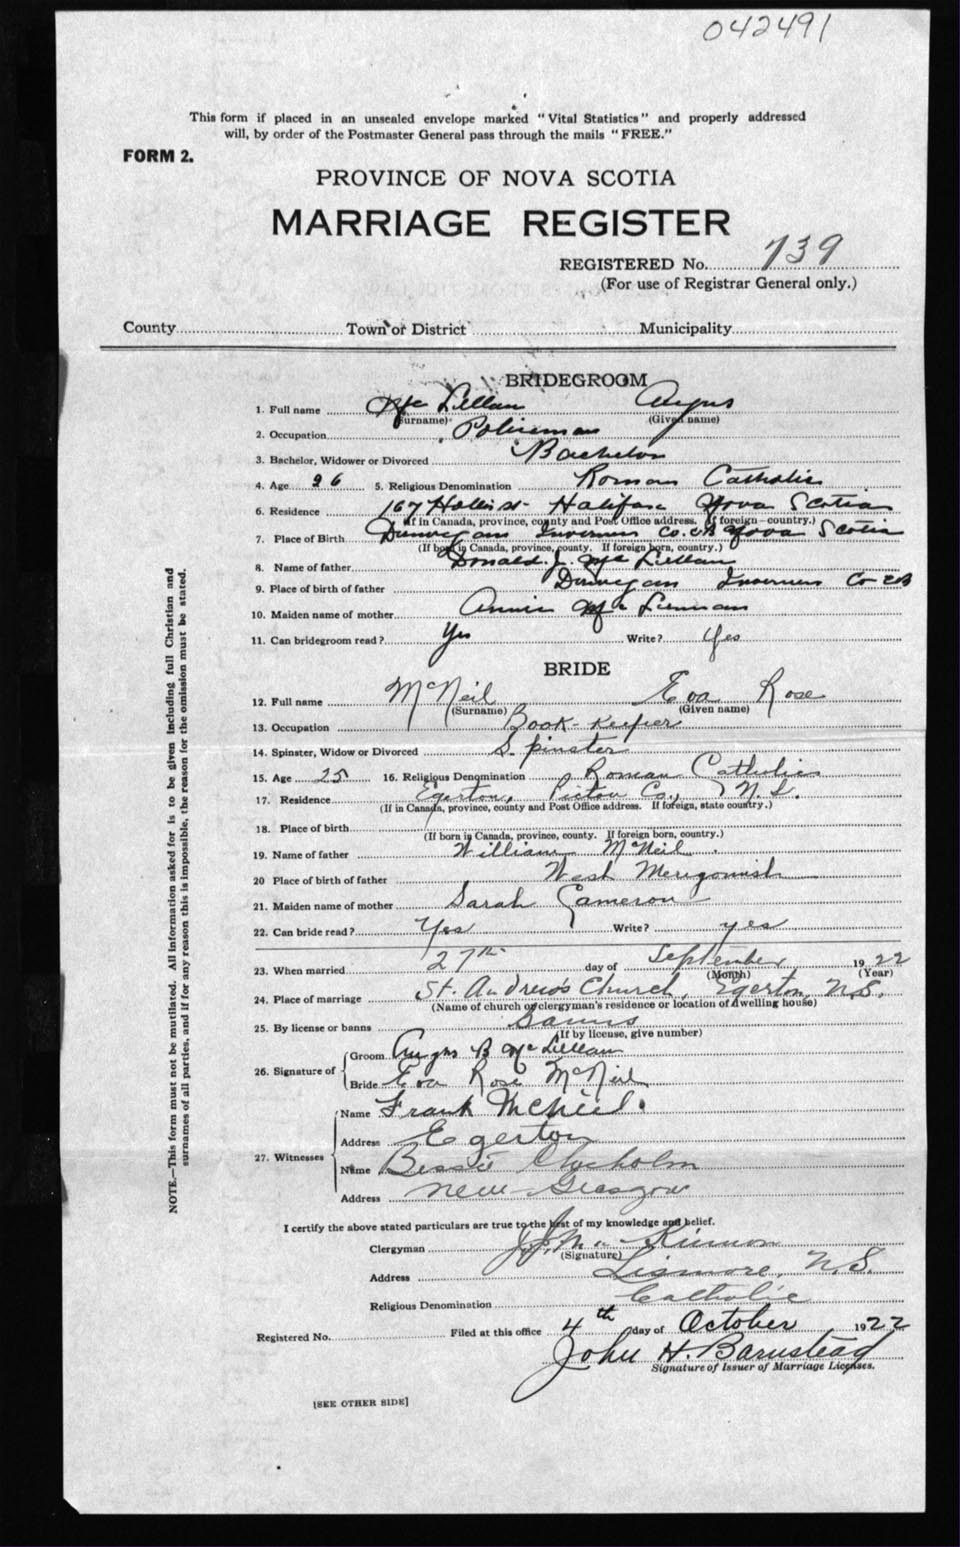 042491
This form if placed in an unsealed envelope marked "Vital Statistics" and properly addressed
will, by order of the Postmaster General pass through the mails "FREE."
FORM 2.
PROVINCE OF NOVA SCOTIA
MARRIAGE REGISTER
REGISTERED No. 739
(For use of Registrar General only.)
County Town or District Municipality
BRIDEGROOM
1. Full name McLellan Angus
(Surname) (Given name)
2. Occupation Policeman
3. Bachelor, Widower or Divorced Bachelor
4. Age 26 5. Religious Denomination Roman Catholic
6. Residence 167 Hollis st. Halifax Nova Scotia
(If in Canada, province, county and Post Office address. If foreign—country.)
7. Place of Birth Dunvegan Inverness Co. CB Nova Scotia
(If born in Canada, province, county. If foreign born, country.)
8. Name of father Donald J. McLellan
9. Place of birth of father Dunvegan Inverness Co CB
10. Maiden name of mother Annie McLennan
11. Can bridegroom read? Yes Write? Yes
BRIDE
12. Full name McNeil Eva Rose
(Surname) (Given name)
13. Occupation Book-keeper
14. Spinster, Widow or Divorced Spinster
15. Age 25 16. Religious Denomination Roman Catholic
17. Residence Egerton, Pictou Co., N.S.
(If in Canada, province, county and Post Office address. If foreign, state country.)
18. Place of birth
(If born in Canada, province, county. If foreign born, country.)
19. Name of father William McNeil
20 Place of birth of father West Merigomish
21. Maiden name of mother Sarah Cameron
22. Can bride read? Yes Write? yes
23. When married 27th day of September 1922
(Month) (Year)
24. Place of marriage St. Andrew's Church, Egerton, N.S.
(Name of church or clergyman's residence or location of dwelling house)
25. By license or banns Banns
(If by license, give number)
26. Signature of Groom Angus B McLellan
Bride Eva Rose McNeil
27. Witnesses Name Frank McNeil.
Address Egerton
Name Bessie Chisholm
Address New-Glasgow
I certify the above stated particulars are true to the best of my knowledge and belief.
Clergyman J.J. McKinnon
(Signature)
Address Lismore, N.S.
Religious Denomination Catholic
Registered No. Filed at this office 4th day of October 1922
John H. Barnstead
Signature of Issuer of Marriage Licenses.
[SEE OTHER SIDE]
NOTE.—This form must not be mutilated. All information asked for is to be given including full Christian and
surnames of all parties, and if for any reason this is impossible, the reason for the omission must be stated.